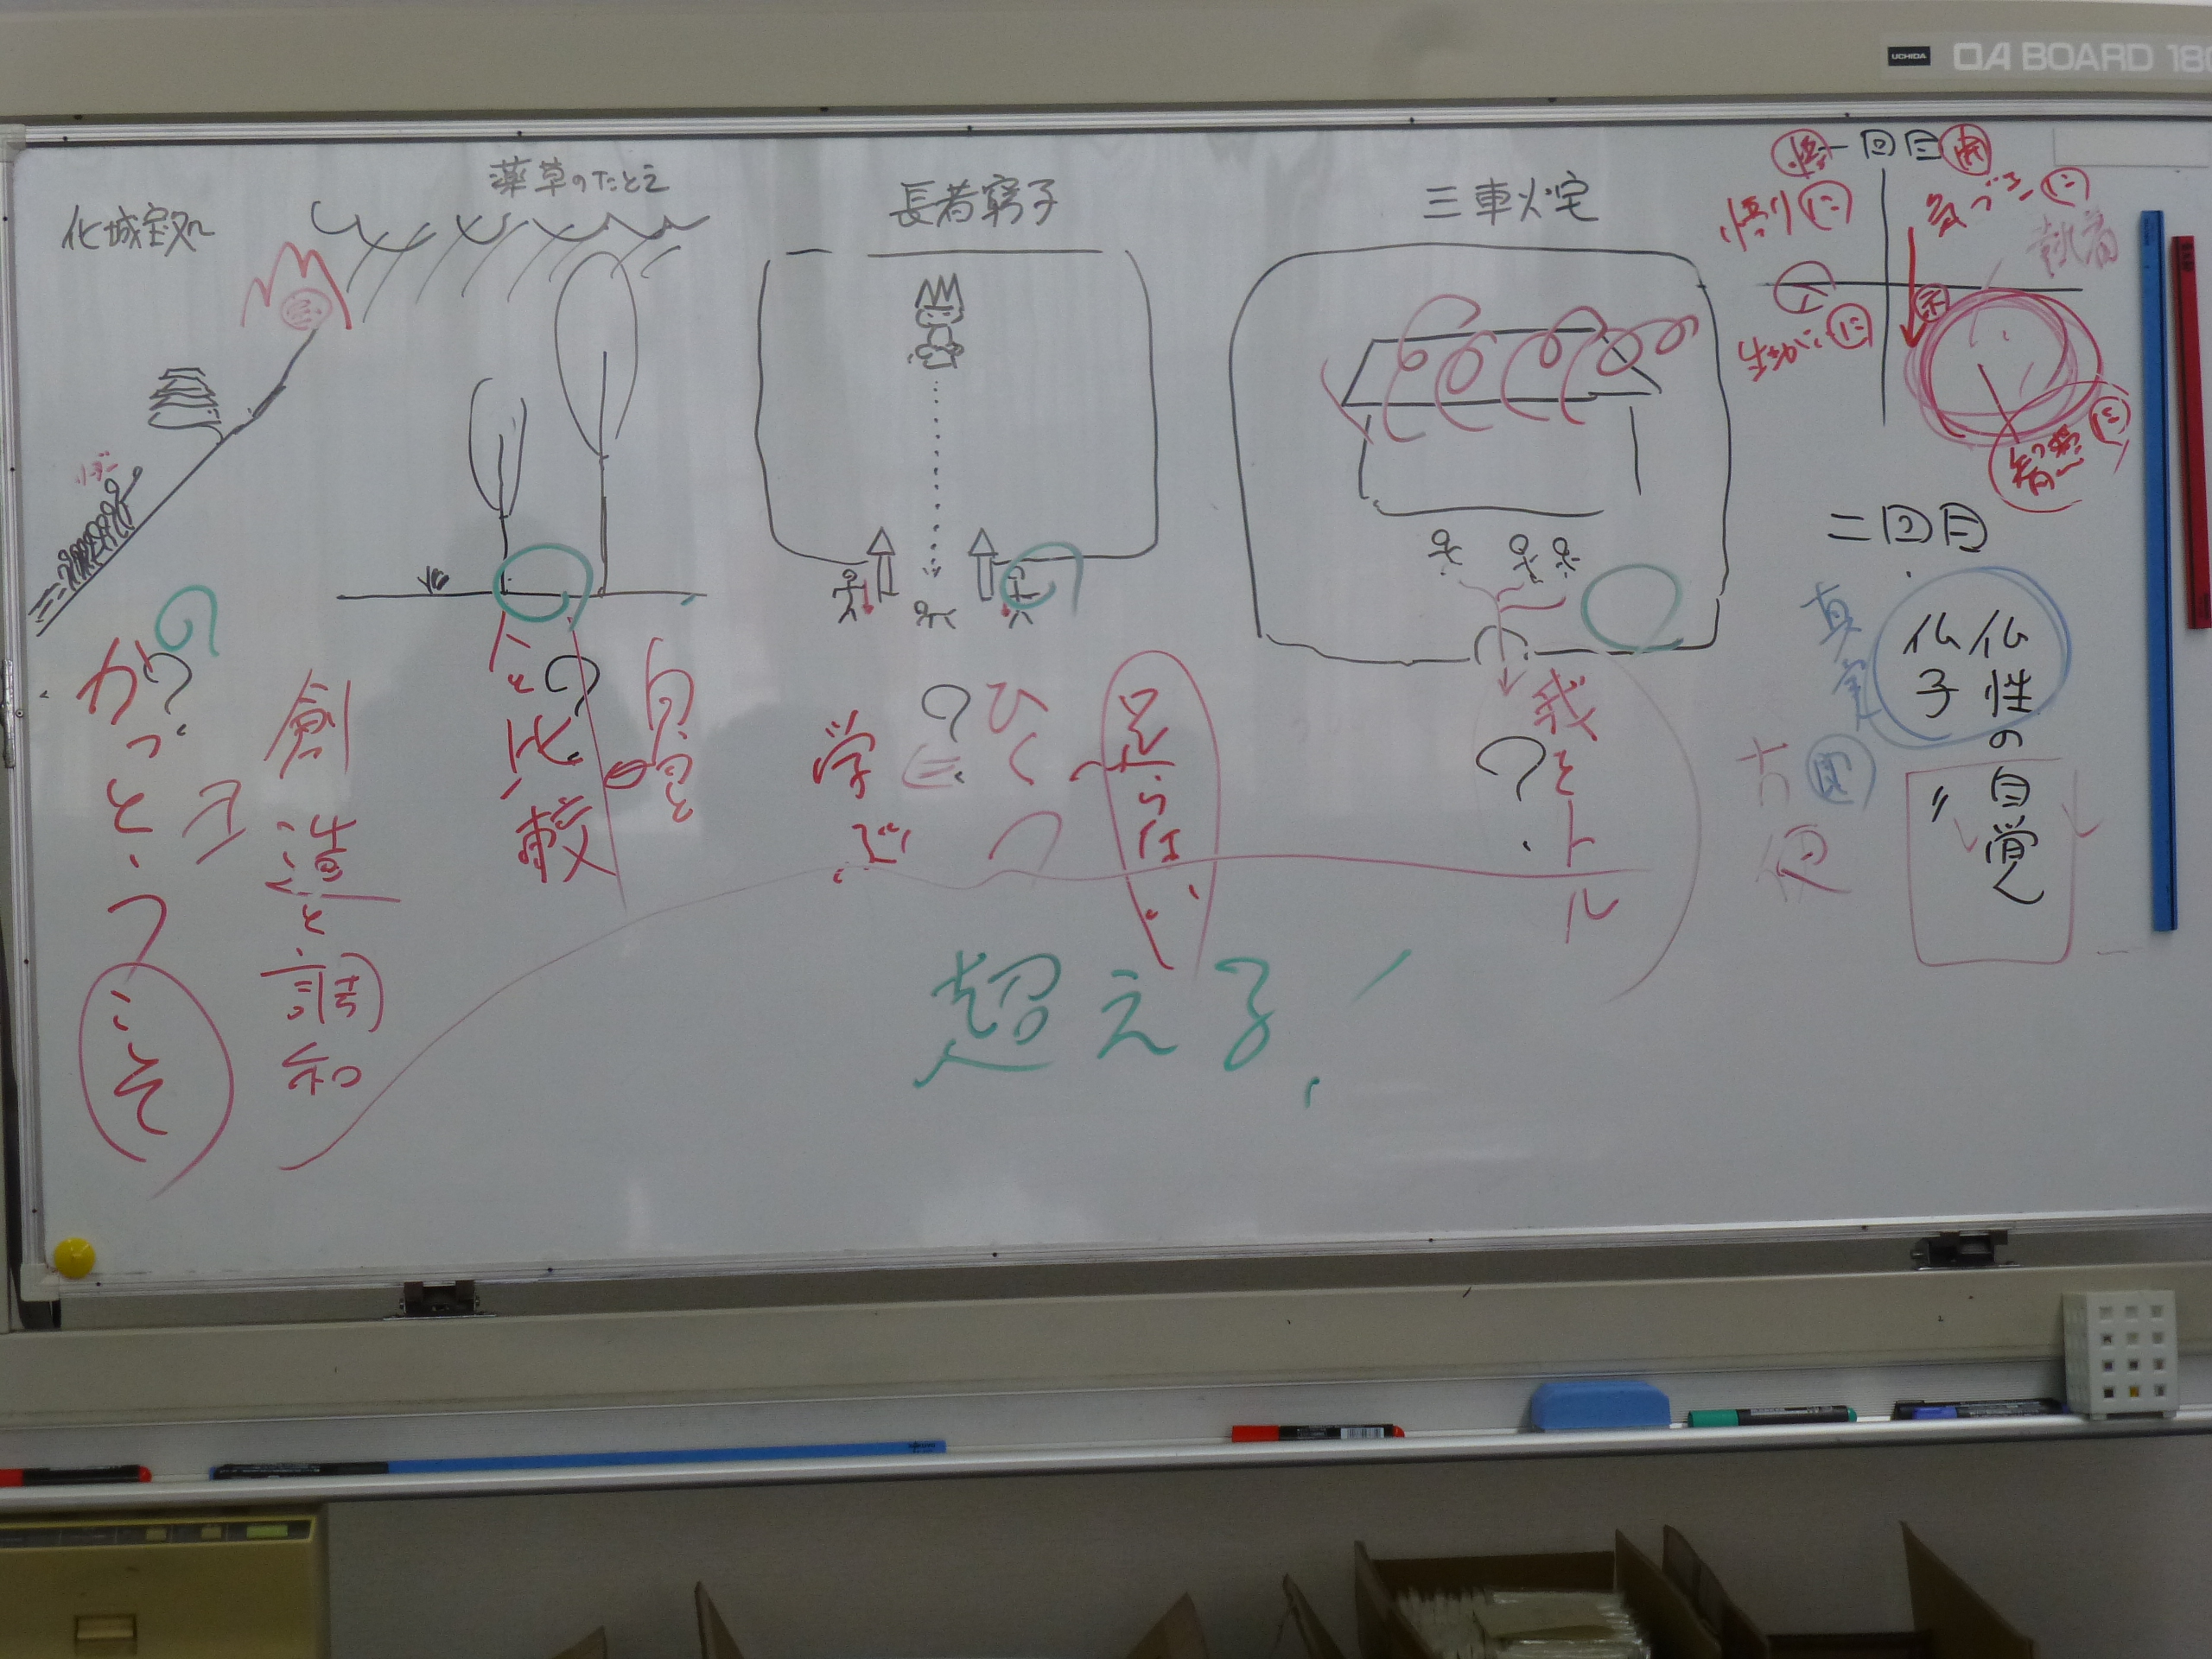 UCHIDA
OA BOARD 180
一回目
悟り に
気づき に
執着
示
生きがい に
智慧
に
二回目
仏性の自覚
仏子 〃
真実
方便
三車火宅
我をトル
?
長者窮子
足らない
ひくつ
?
学び
薬草のたとえ
自分と
人と比較
?
創造と調和
化城宝処
リーダー
?
かっとう
こそ
超える!